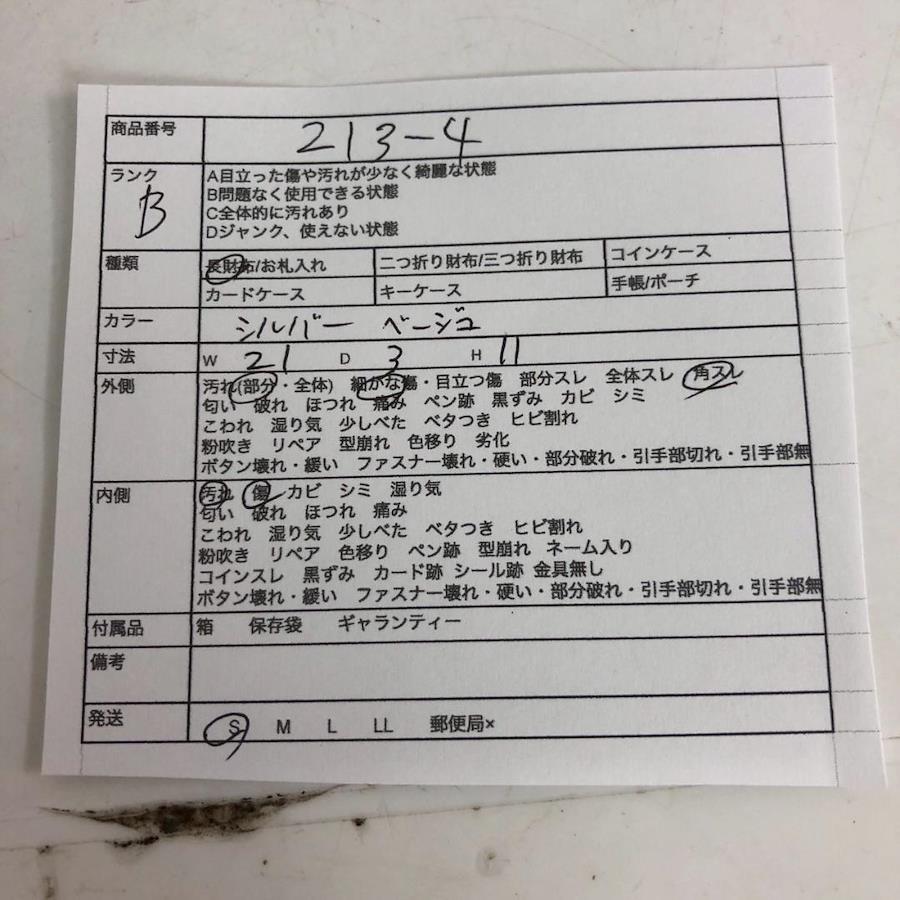 商品番号 213-4
ランク B A目立った傷や汚れが少なく綺麗な状態
B問題なく使用できる状態
C全体的に汚れあり
Dジャンク、使えない状態
種類 長財布/お札入れ 二つ折り財布/三つ折り財布 コインケース
カードケース キーケース 手帳/ポーチ
カラー シルバー ベージュ
寸法 W 21 D 3 H 11
外側 汚れ(部分・全体) 細かな傷・目立つ傷 部分スレ 全体スレ 角スレ
匂い 破れ ほつれ 痛み ペン跡 黒ずみ カビ シミ
こわれ 湿り気 少しべた ベタつき ヒビ割れ
粉吹き リペア 型崩れ 色移り 劣化
ボタン壊れ・緩い ファスナー壊れ・硬い・部分破れ・引手部切れ・引手部無
内側 汚れ 傷 カビ シミ 湿り気
匂い 破れ ほつれ 痛み
こわれ 湿り気 少しべた ベタつき ヒビ割れ
粉吹き リペア 色移り ペン跡 型崩れ ネーム入り
コインスレ 黒ずみ カード跡 シール跡 金具無し
ボタン壊れ・緩い ファスナー壊れ・硬い・部分破れ・引手部切れ・引手部無
付属品 箱 保存袋 ギャランティー
備考
発送 S M L LL 郵便局×